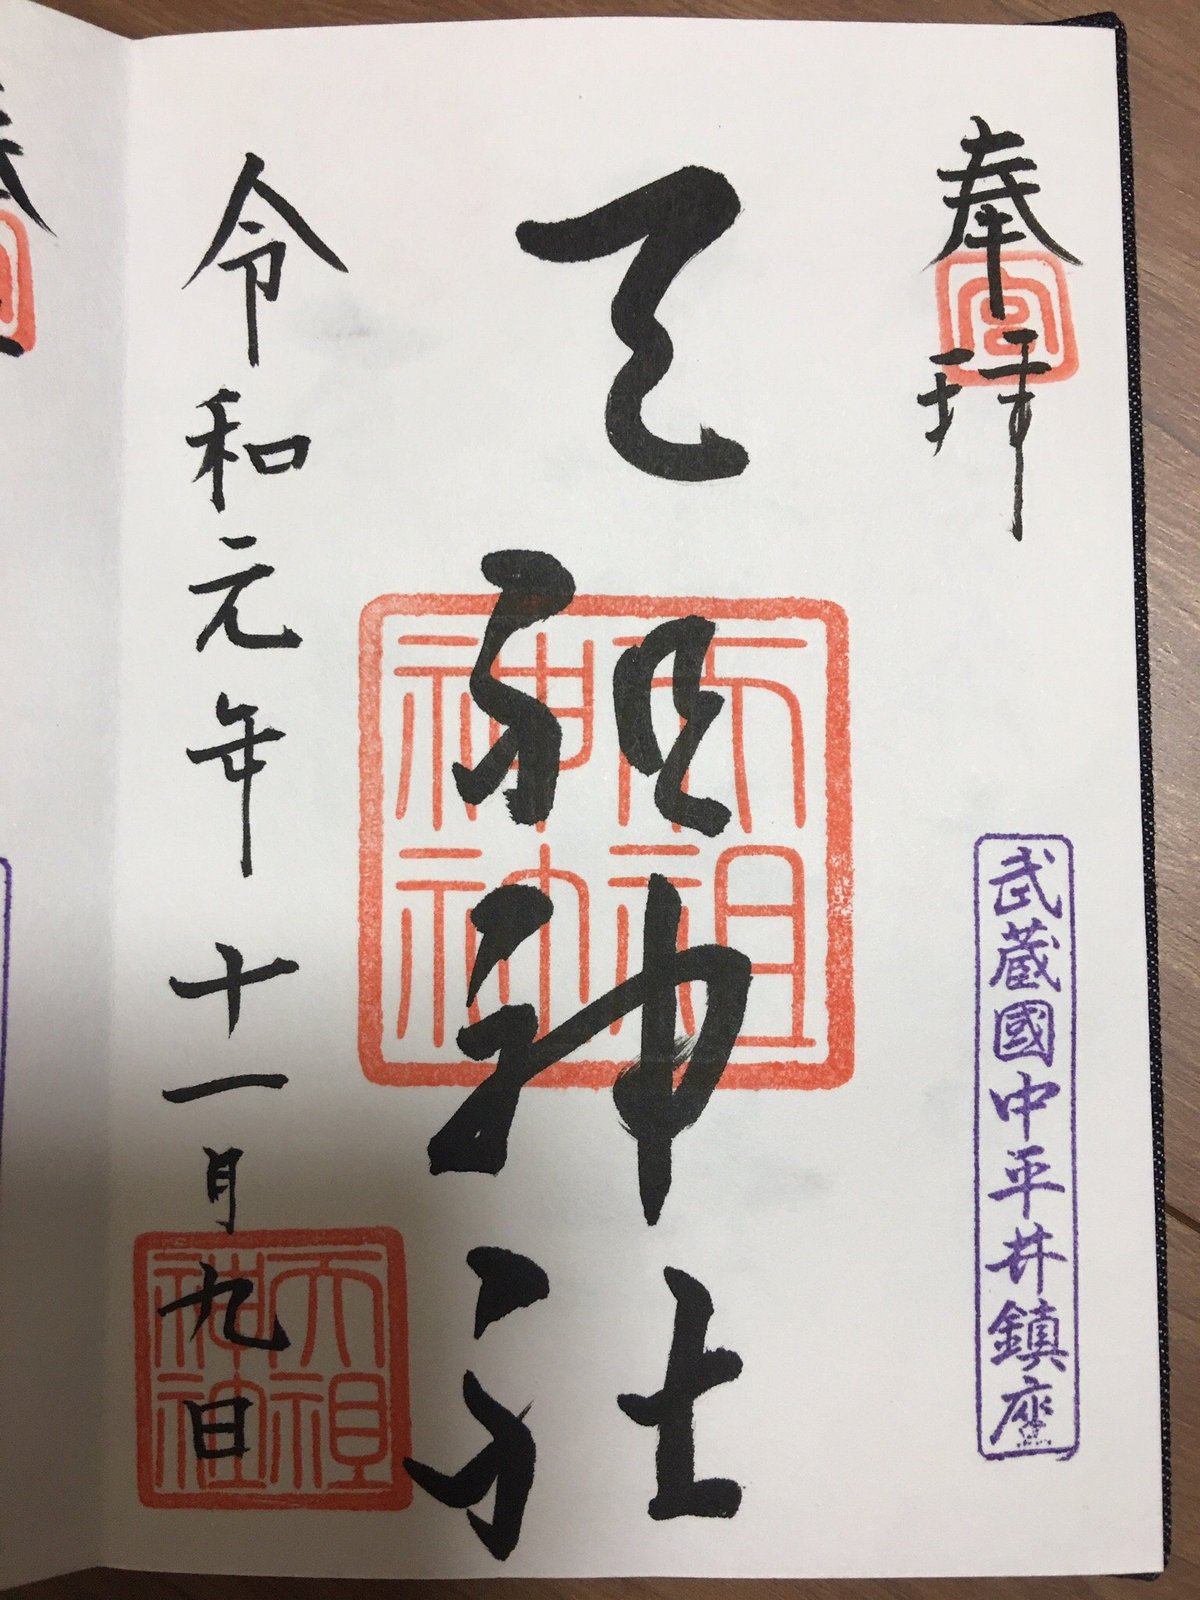 奉拝
武蔵國中平井鎮座
天祖神社
天祖神社
令和元年十一月九日
天祖神社